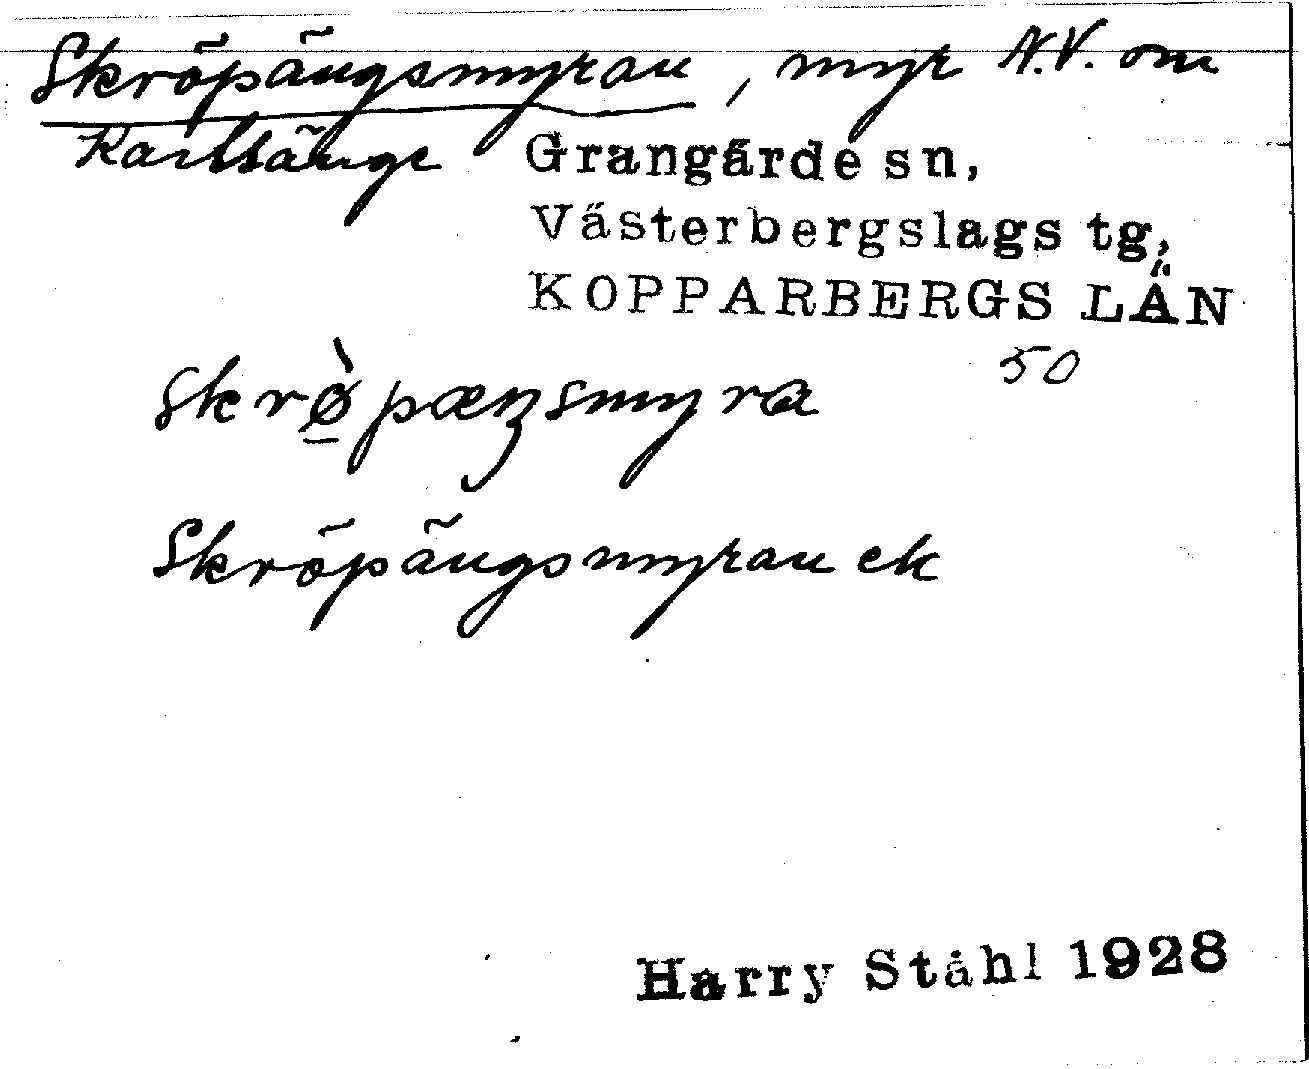 Skröpängsmyran, myr N.V. om
Karlsänge
Grangärde sn,
Västerbergslags tg,
KOPPARBERGS LÄN
50
skrø̀pæŋsmyra
Skröpängsmyran ek
Harry Ståhl 1928